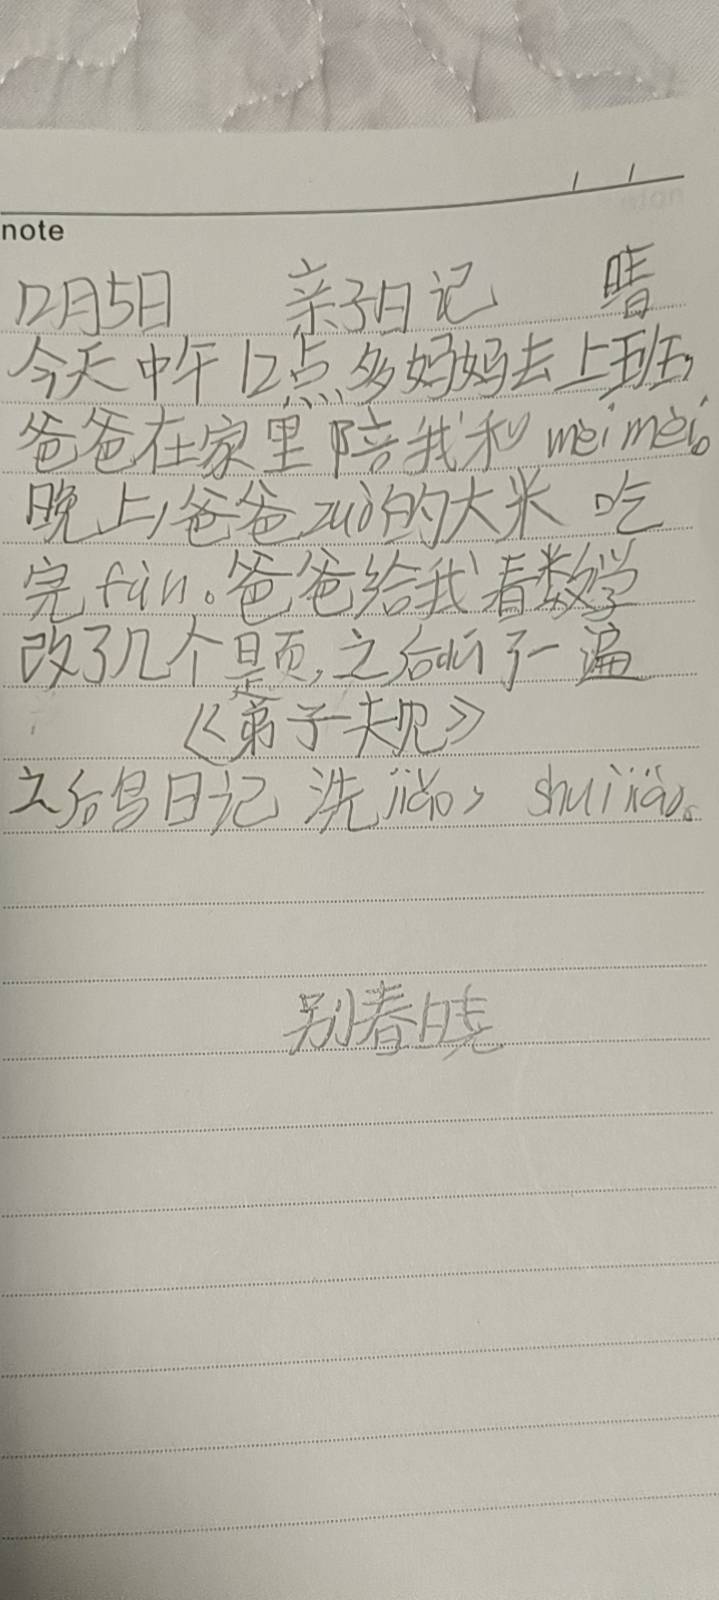 note
12月5日 亲子日记 晴
今天中午12点多妈妈去上班,
爸爸在家里陪我和mèimei。
晚上,爸爸zuò的大米 吃
完fàn。爸爸给我看数学
改了几个题,之后听了一遍
《弟子规》
之后写日记 洗jiǎo, shuìjiào。
别春晓